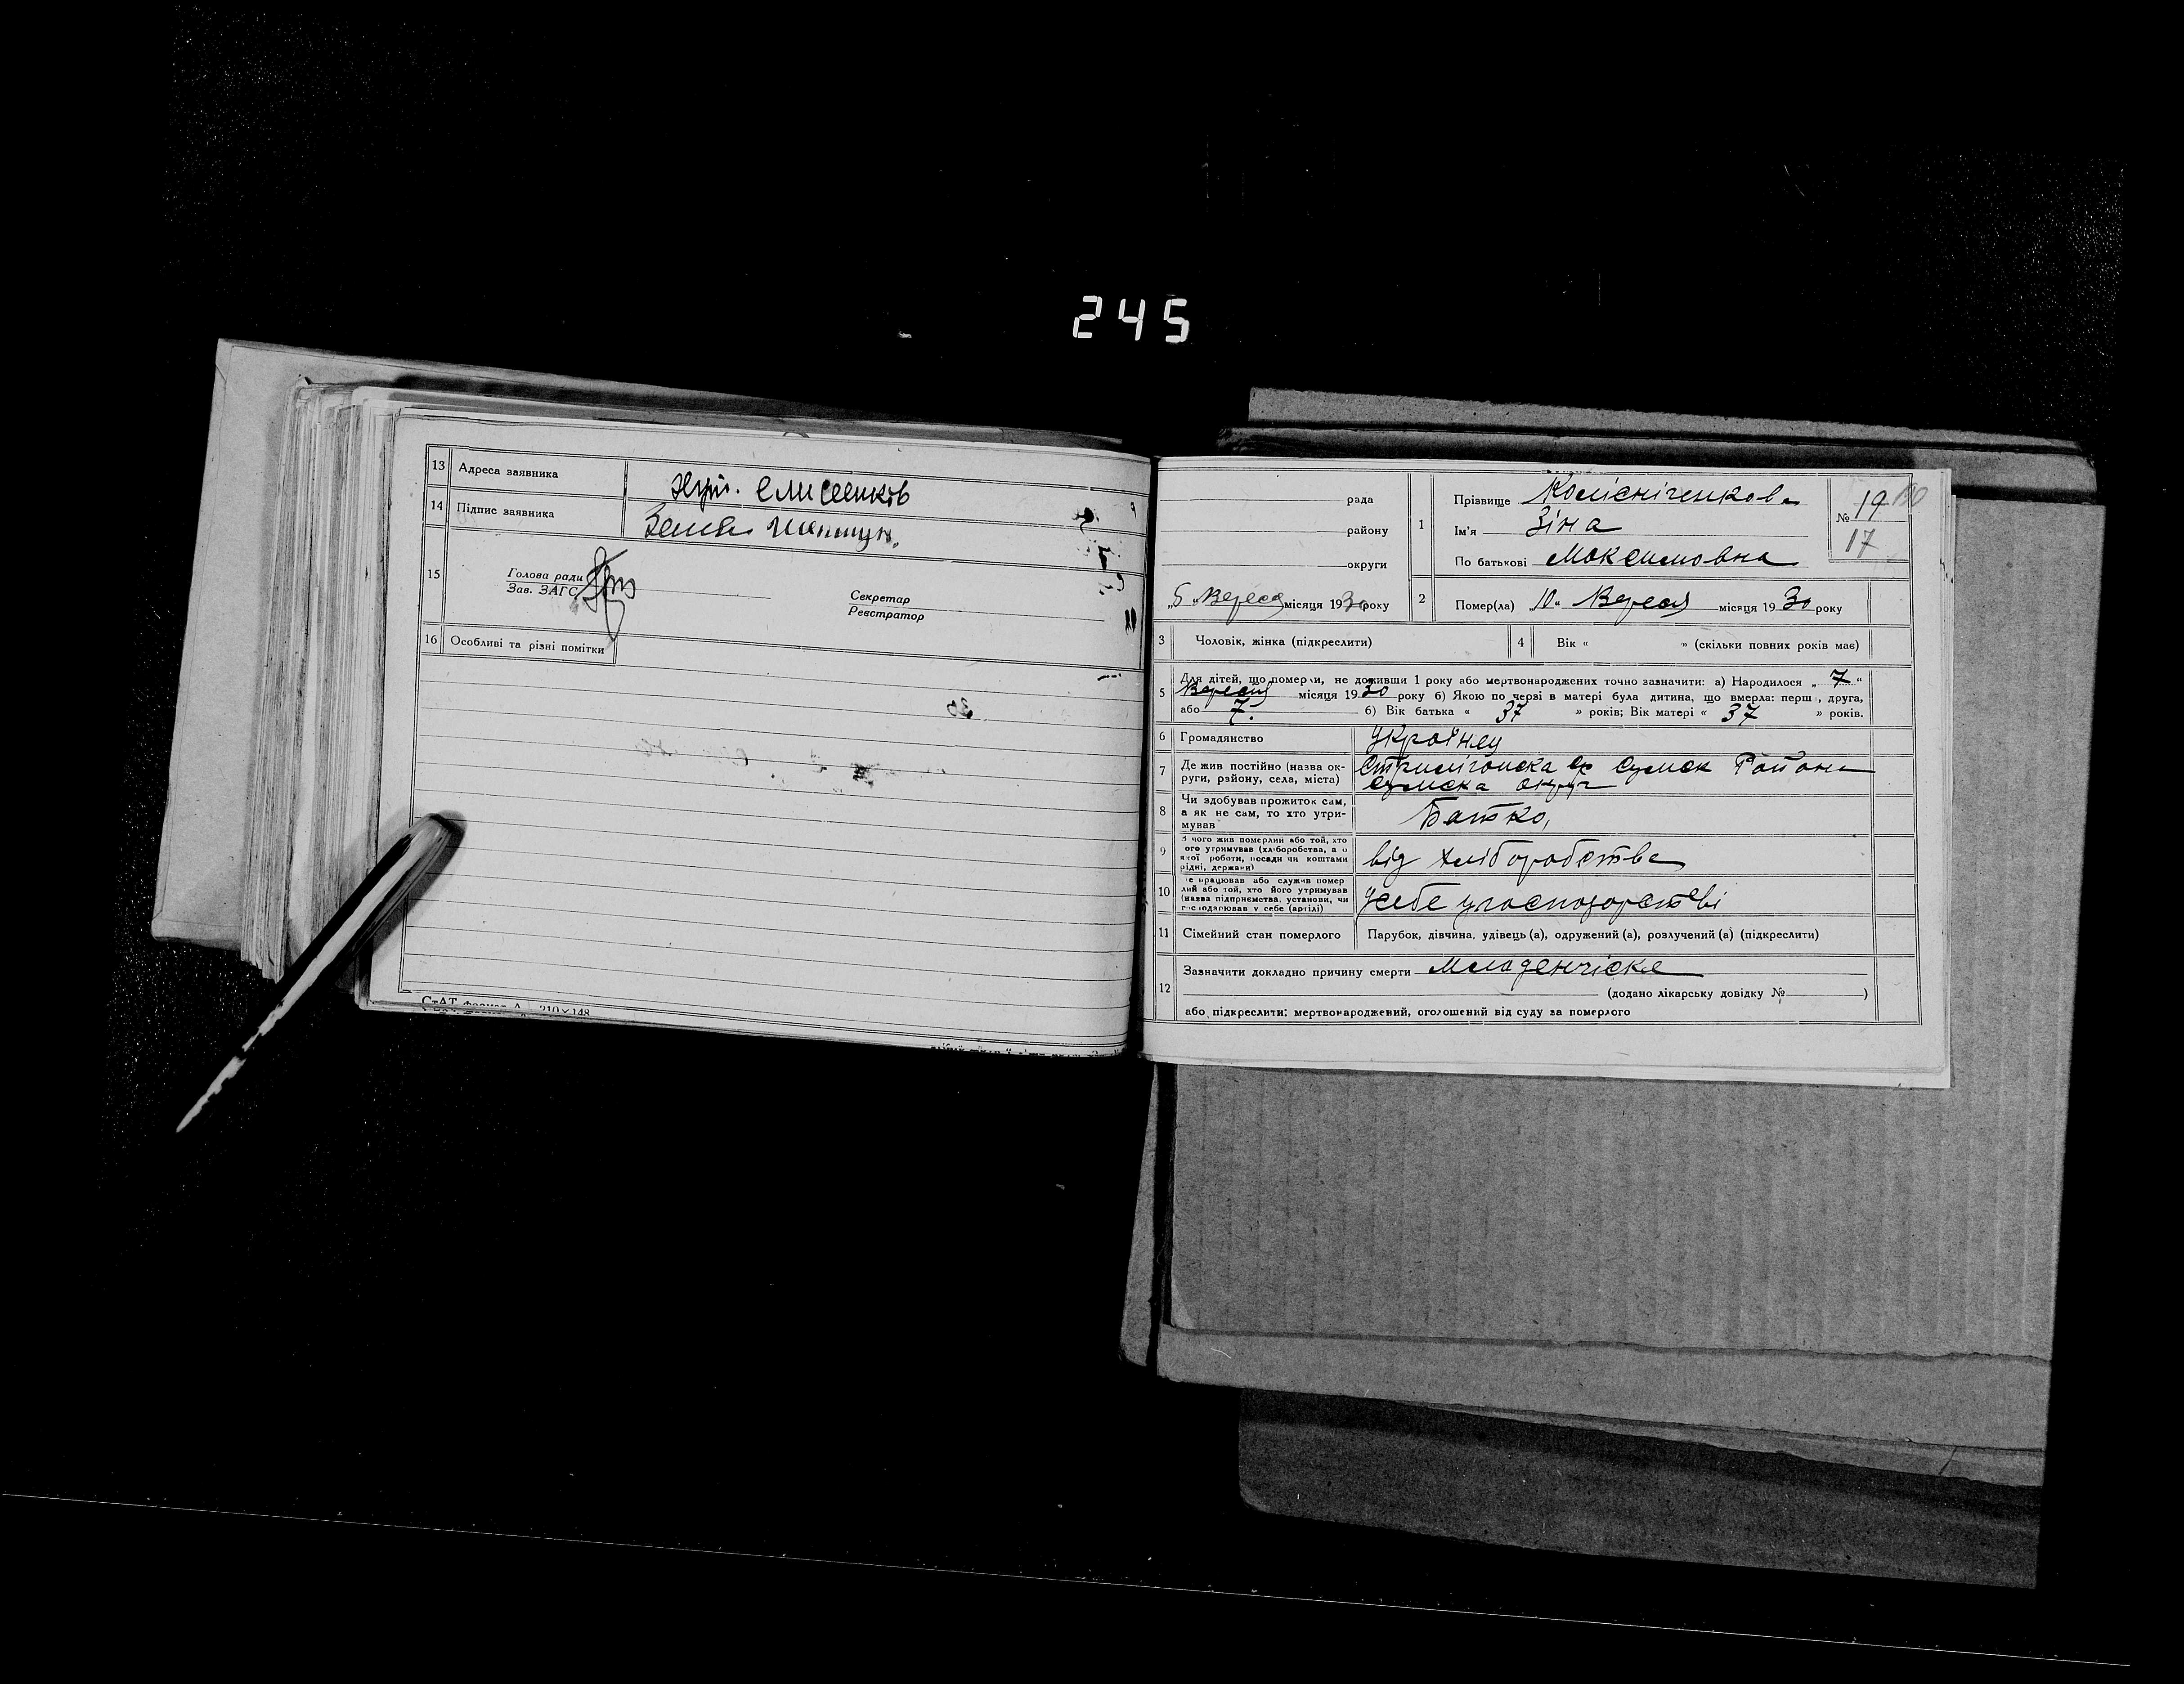 245
13 Адреса заявника Хут. Єлисеєнків
14 Підпис заявника
15 Голова ради
Зав. ЗАГС
Секретар
Реєстратор
16 Особливі та різні помітки
СтАТ Формат А 210×148
рада
району
округи
„5" Вересня місяця 1930 року
1 Прізвище Колісніченкова
Ім'я Зіна
По батькові Максимовна
№ 19
17
2 Помер(ла) „10" Вересня місяця 1930 року
3 Чоловік, жінка (підкреслити)
4 Вік « » (скільки повних років має)
5 Для дітей, що померли, не доживши 1 року або мертвонароджених точно зазначити: а) Народилося „7"
Вересня місяця 1930 року б) Якою по черзі в матері була дитина, що вмерла: перш , друга,
або 7. б) Вік батька « 37 » років; Вік матері « 37 » років.
6 Громадянство Українец
7 Де жив постійно (назва ок-
руги, району, села, міста)
Сумск Района
Сумска округ
8 Чи здобував прожиток сам,
а як не сам, то хто утри-
мував
Батко,
9 З чого жив померлий або той, хто
ого утримував (хліборобства, а о
якої роботи, посади чи коштами
рідні, держави)
від хліборобства
10 е працював або служив помер
лий або той, хто його утримував
(назва підприємства, установи, чи
господарював у себе (артілі)
усебе угосподорстві
11 Сімейний стан померлого Парубок, дівчина, удівець (а), одружений (а), розлучений (а) (підкреслити)
12 Зазначити докладно причину смерти Младенчіска
(додано лікарську довідку № )
або підкреслити: мертвонароджений, оголошений від суду за померлого